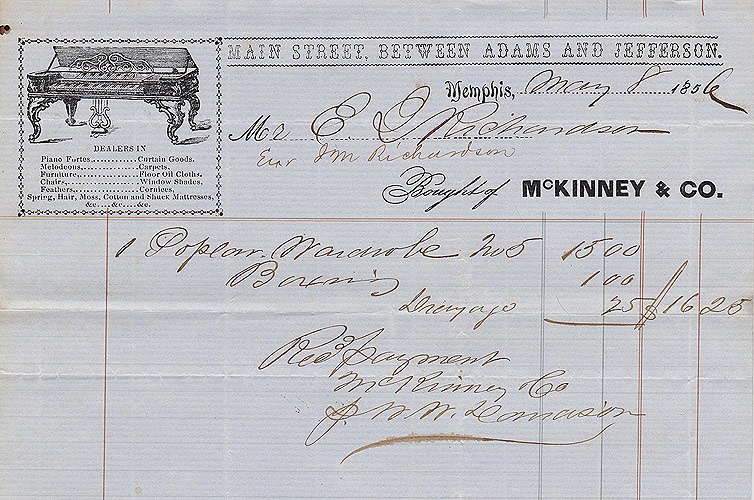 MAIN STREET, BETWEEN ADAMS AND JEFFERSON.
Memphis, May 8 1856
Mr E. D. Richardson
Exor J M Richardson
Bought of McKINNEY & CO.
DEALERS IN
Piano Fortes............Curtain Goods.
Melodeons,..................Carpets,
Furniture,........Floor Oil Cloths.
Chairs,............Window Shades,
Feathers,..................Cornices,
Spring, Hair, Moss, Cotton and Shuck Mattresses,
&c.....&c.....&c.
1 Poplar Wardrobe No 5 15 00
Boxing 1 00
Drayage 25 $16 25
Recd payment
McKinney & Co
J. W. W.